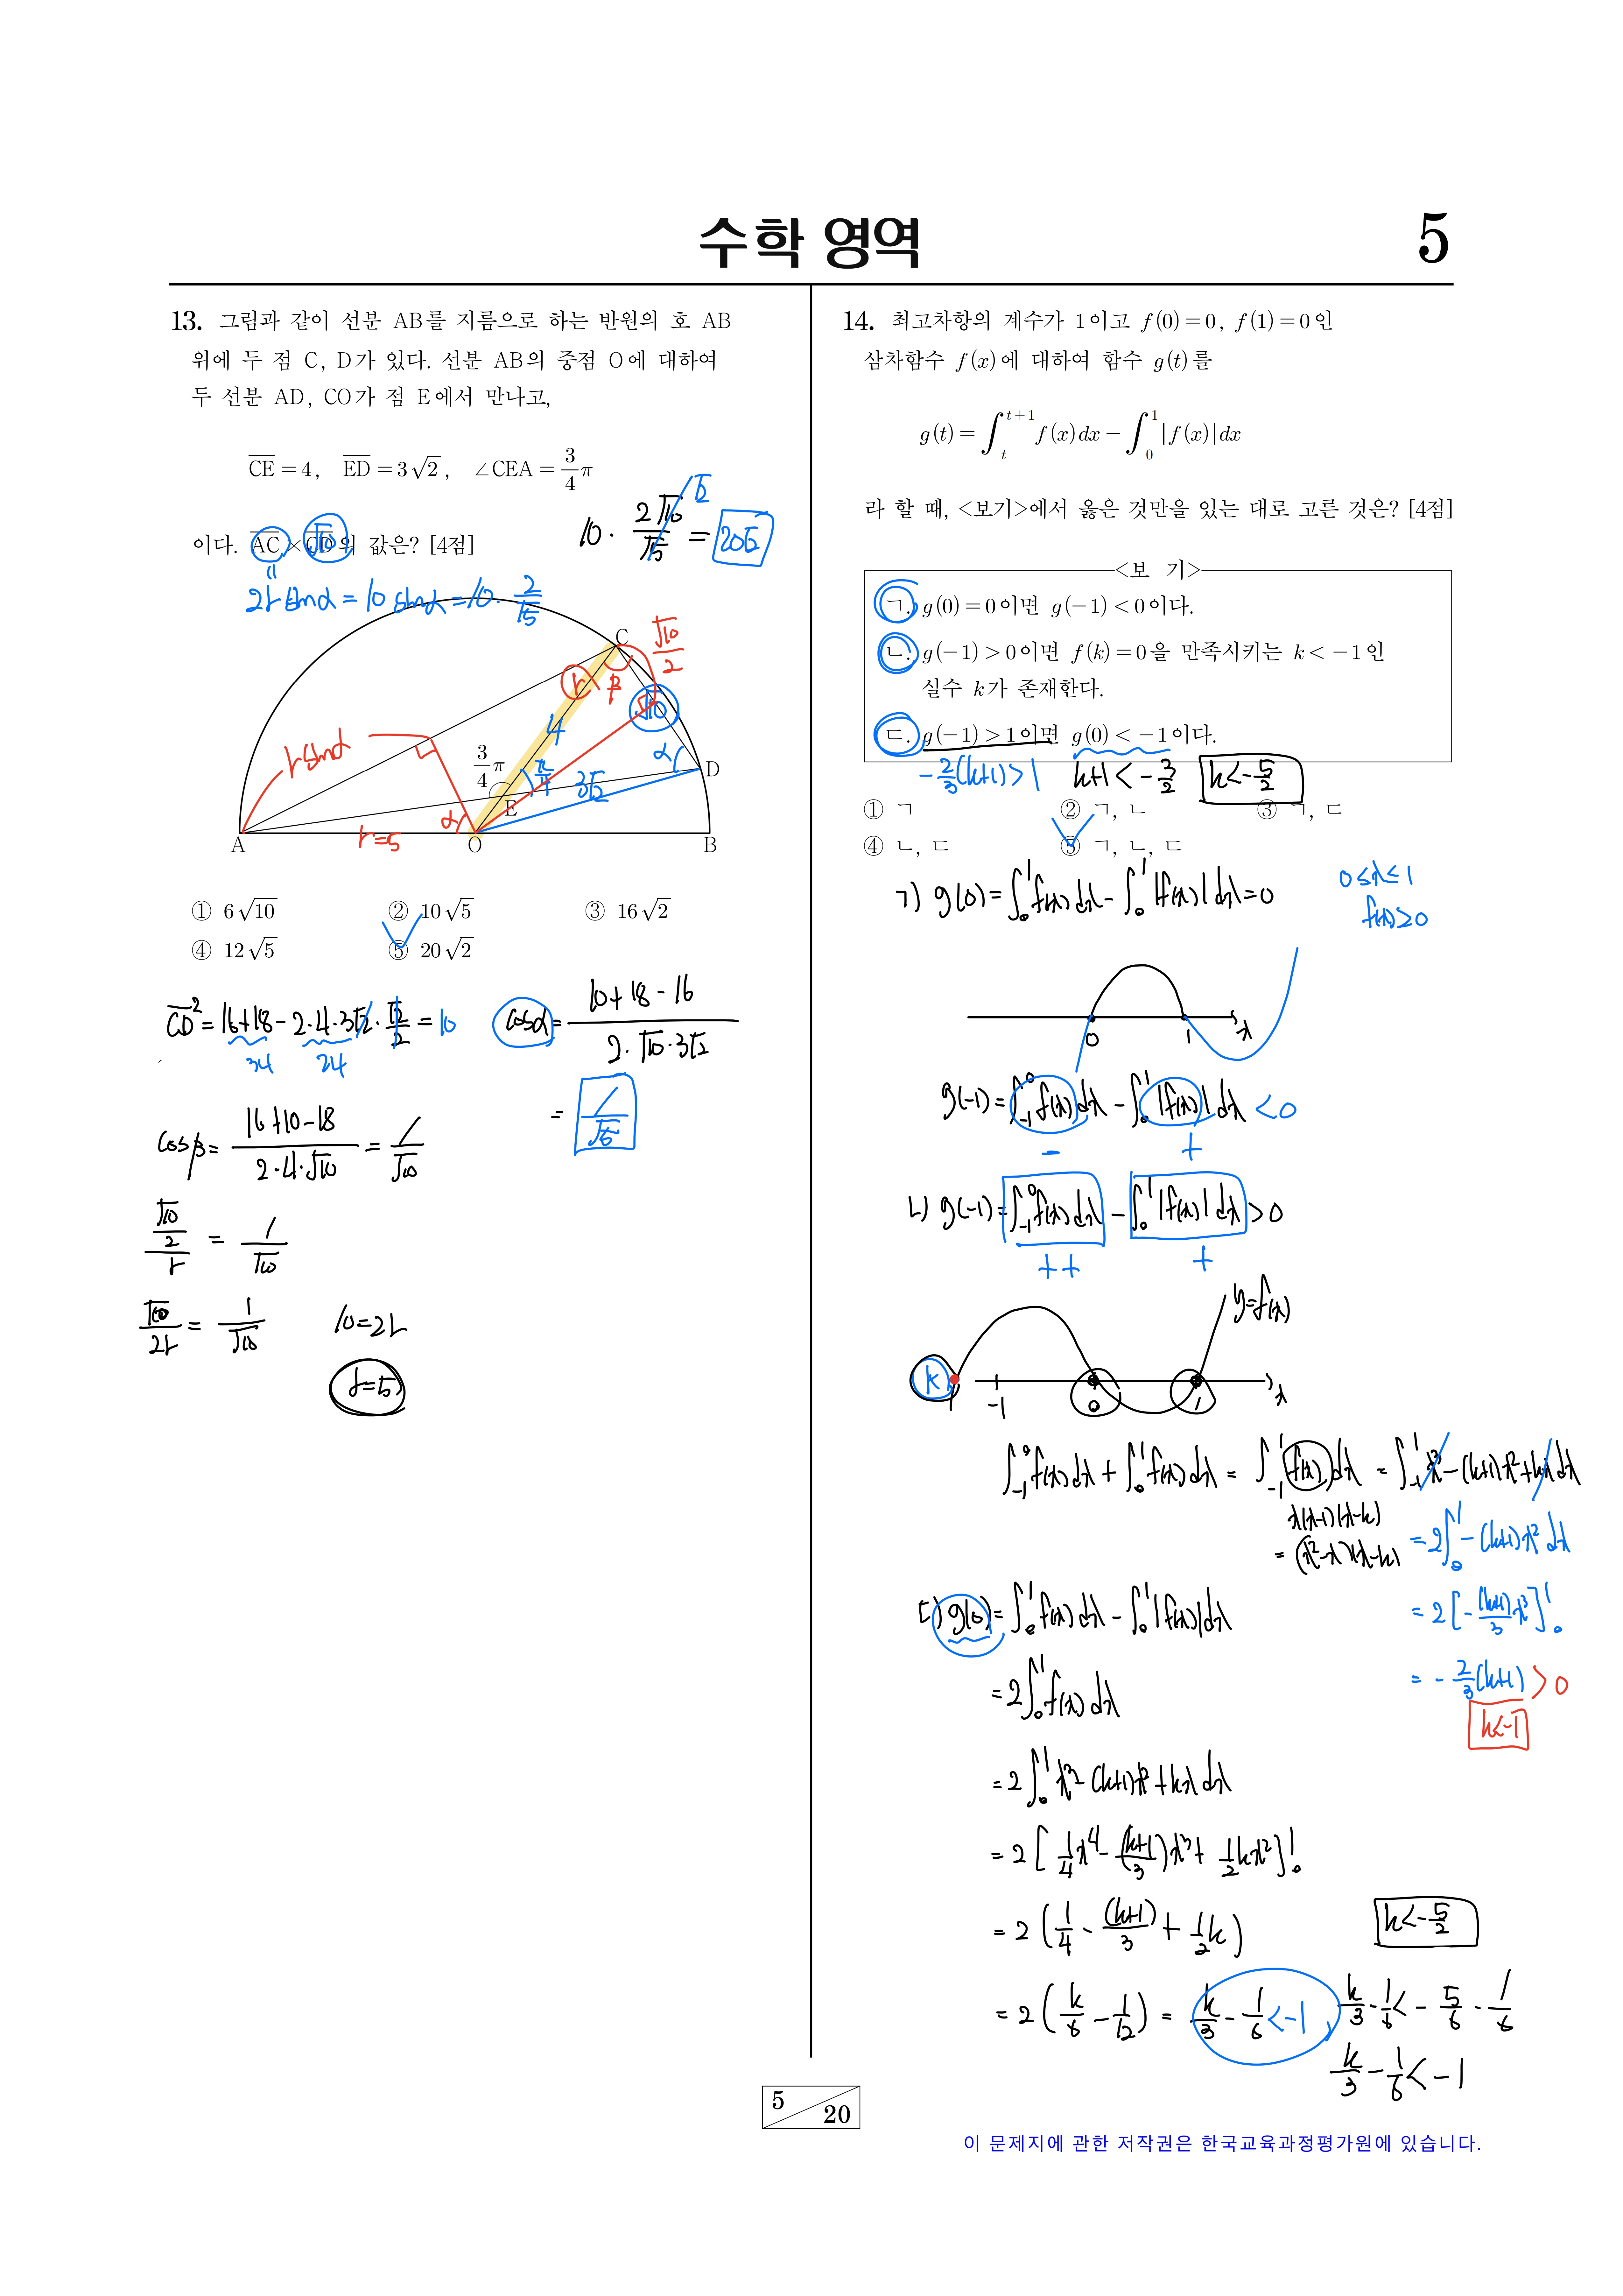 수학 영역
5
13. 그림과 같이 선분 AB를 지름으로 하는 반원의 호 AB
위에 두 점 C, D가 있다. 선분 AB의 중점 O에 대하여
두 선분 AD, CO가 점 E에서 만나고,
CE = 4, ED = 3√2, ∠CEA = 3/4 π
이다. AC × CD의 값은? [4점]
√10
10 · 2√10/√5 = 20√2
√2
2r sinα = 10 sinα = 10 · 2/√5
C
√10/2
r
β
√10
4
r sinα
3/4 π
π/4
3√2
α
D
E
α
A
r=5
O
B
① 6√10
② 10√5
③ 16√2
④ 12√5
⑤ 20√2
CD² = 16+18 - 2·4·3√2·√2/2 = 10
34
24
cosα = 10+18-16 / 2·√10·3√2
= 1/√5
cosβ = 16+10-18 / 2·4·√10 = 1/√10
√10/2 / r = 1/√10
√10/2r = 1/√10
10=2r
r=5
14. 최고차항의 계수가 1이고 f(0)=0, f(1)=0인
삼차함수 f(x)에 대하여 함수 g(t)를
g(t) = ∫_t^{t+1} f(x)dx - ∫_0^1 |f(x)|dx
라 할 때, <보기>에서 옳은 것만을 있는 대로 고른 것은? [4점]
<보 기>
ㄱ. g(0)=0이면 g(-1)<0이다.
ㄴ. g(-1)>0이면 f(k)=0을 만족시키는 k<-1인
실수 k가 존재한다.
ㄷ. g(-1)>1이면 g(0)<-1이다.
-2/3(k+1)>1
k+1<-3/2
k<-5/2
① ㄱ
② ㄱ, ㄴ
③ ㄱ, ㄷ
④ ㄴ, ㄷ
⑤ ㄱ, ㄴ, ㄷ
ㄱ) g(0) = ∫_0^1 f(x)dx - ∫_0^1 |f(x)|dx = 0
0≤x≤1
f(x)≥0
0
1
x
g(-1) = ∫_{-1}^0 f(x)dx - ∫_0^1 |f(x)|dx <0
-
+
ㄴ) g(-1) = ∫_{-1}^0 f(x)dx - ∫_0^1 |f(x)|dx >0
++
+
y=f(x)
k
-1
0
1
x
∫_{-1}^0 f(x)dx + ∫_0^1 f(x)dx = ∫_{-1}^1 f(x)dx = ∫_{-1}^1 x³-(k+1)x²+kx dx
x(x-1)(x-k)
= (x²-x)(x-k)
= 2∫_0^1 -(k+1)x² dx
= 2[-(k+1)/3 x³]_0^1
= -2/3(k+1) >0
k<-1
ㄷ) g(0) = ∫_0^1 f(x)dx - ∫_0^1 |f(x)|dx
= 2∫_0^1 f(x)dx
= 2∫_0^1 x³-(k+1)x²+kx dx
= 2[1/4 x⁴ - (k+1)/3 x³ + 1/2 kx²]_0^1
= 2(1/4 - (k+1)/3 + 1/2 k)
k<-5/2
= 2(k/6 - 1/12) = k/3 - 1/6 <-1
k/3 - 1/6 < -5/6 - 1/6
k/3 - 1/6 < -1
5
20
이 문제지에 관한 저작권은 한국교육과정평가원에 있습니다.